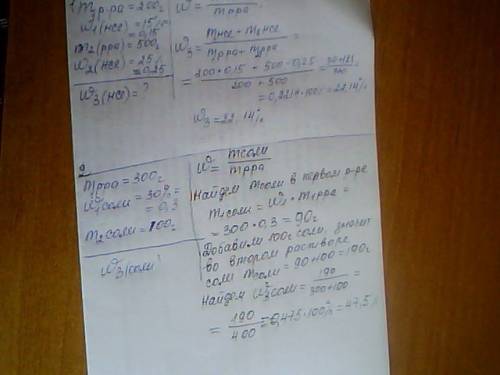 1) m₁р-ра = 200г
w₁(HCl) = 15% = 0,15
m₂(рра) = 500г
w₂(HCl) = 25% = 0,25
w₃(HCl) = ?
w = / mрра
w₃ = m₁HCl + m₂HCl / m₁рра + m₂рра =
= 200 * 0,15 + 500 * 0,25 / 200 + 500 =
= 0,2214 * 100% = 22,14%
w₃ = 22,14%
2
mрра = 300г
w₁соли = 30% = 0,3
m₂соли = 100г
w₃(соли)
w = mсоли / mрра
Найдем mсоли в первом р-ре
m₁соли = w₁ * m₁рра =
= 300 * 0,3 = 90г
Добавили 100г соли, значит
во втором растворе
соли mсоли = 90 + 100 = 190г
Найдем w₃соли = 190 / 300 + 100 =
= 190 / 400 = 0,475 * 100% = 47,5%